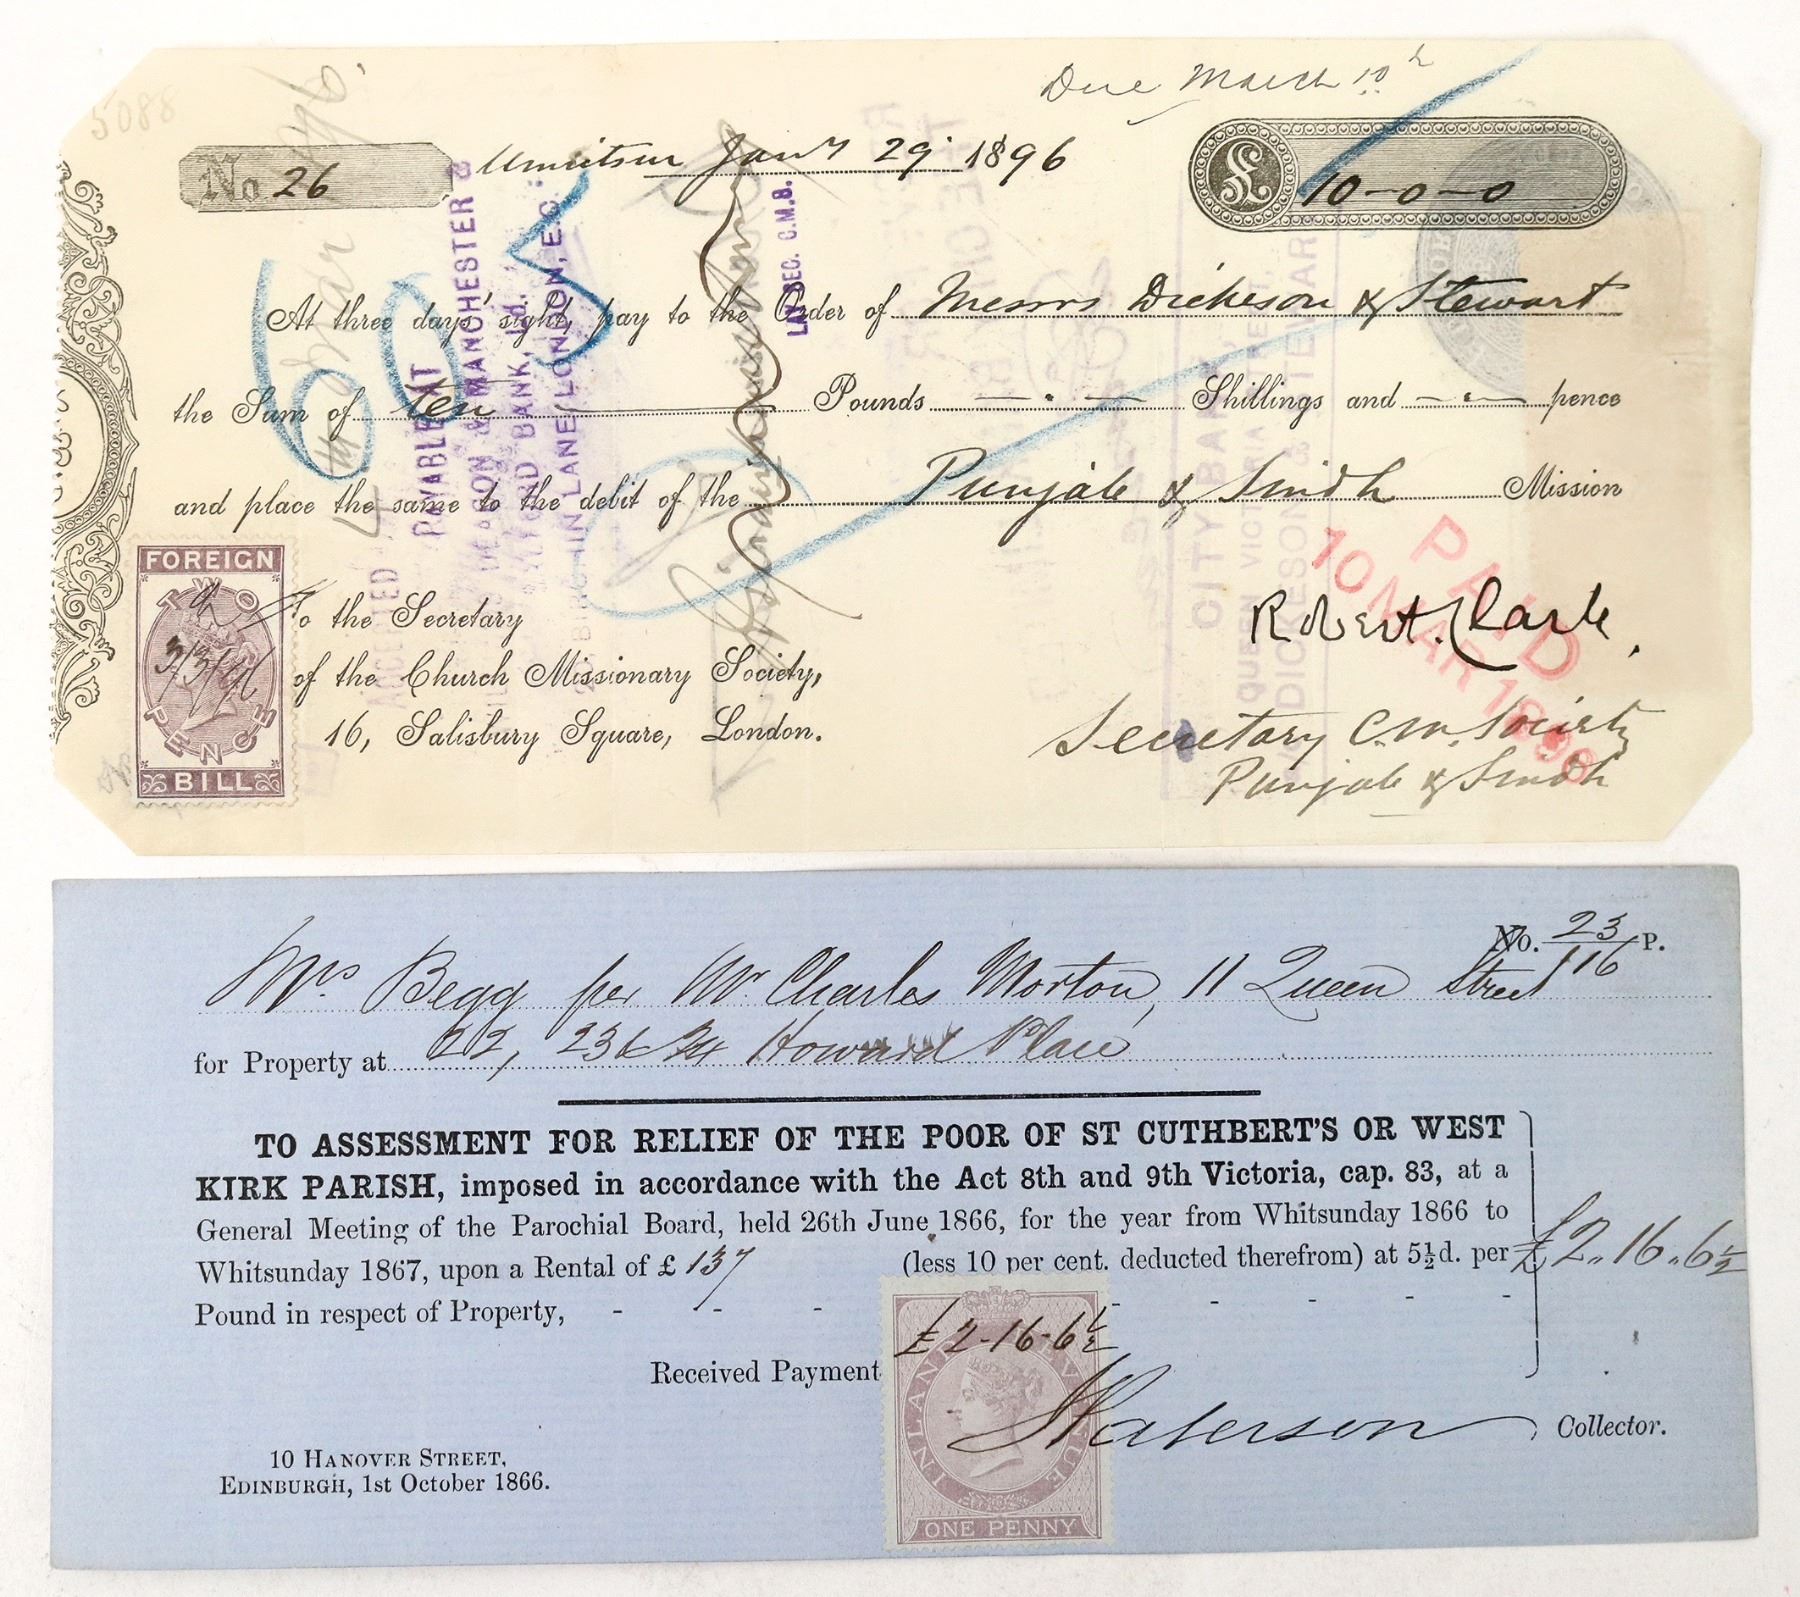 5088
Due March 10th
No 26
Umritsur Jany 29 1896
£ 10-0-0
At three days' sight, pay to the Order of Messrs Dickeson & Stewart
the Sum of ten Pounds Shillings and pence
and place the same to the debit of the Punjab & Sindh Mission
To the Secretary
of the Church Missionary Society,
16, Salisbury Square, London.
Robert Clark.
Secretary C.M. Society
Punjab & Sindh
FOREIGN
TWO
PENCE
BILL
603
ACCEPTED
PAYABLE AT
MANCHESTER &
BANK, Ld.
LANE, LONDON, E.C.
LAY SEC. C.M.S.
CITY BANK,
QUEEN VICTORIA STREET,
DICKESON & STEWART
PAID
10 MAR 1896
No. 23/116 P.
Mrs Begg per Mr Charles Morton, 11 Queen Street
for Property at 22, 23 & 24 Howard Place
TO ASSESSMENT FOR RELIEF OF THE POOR OF ST CUTHBERT'S OR WEST
KIRK PARISH, imposed in accordance with the Act 8th and 9th Victoria, cap. 83, at a
General Meeting of the Parochial Board, held 26th June 1866, for the year from Whitsunday 1866 to
Whitsunday 1867, upon a Rental of £ 137 (less 10 per cent. deducted therefrom) at 5½d. per
Pound in respect of Property, - - - - - - - -
£2.. 16..6½
Received Payment
£2-16-6½
INLAND REVENUE
ONE PENNY
Paterson Collector.
10 HANOVER STREET,
EDINBURGH, 1st October 1866.